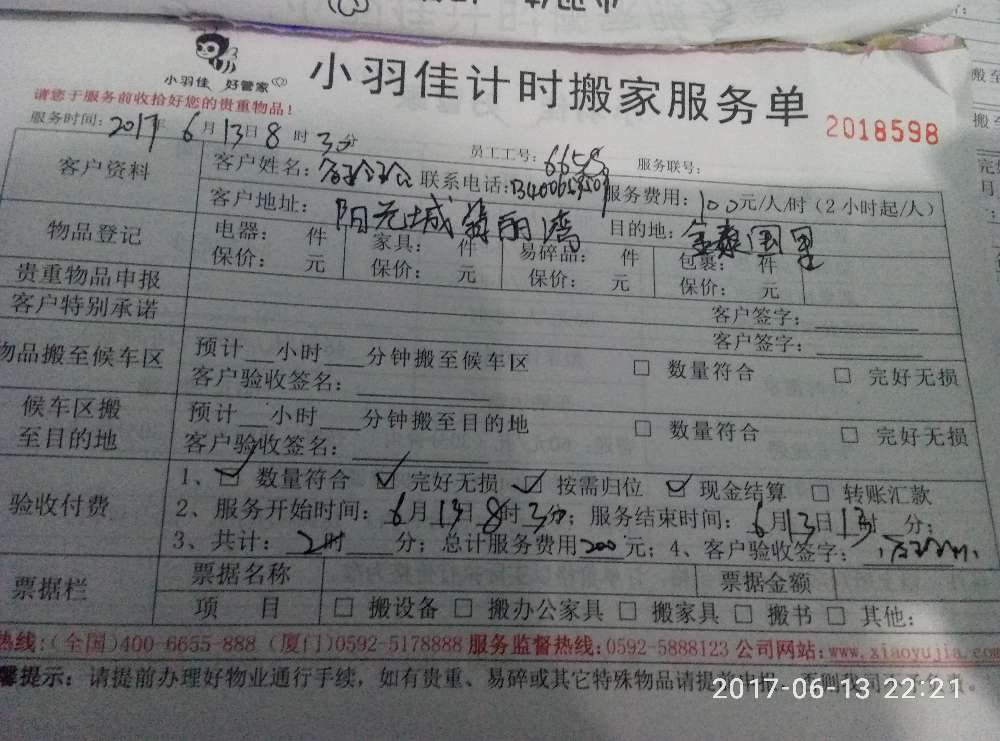 小羽佳 好管家
小羽佳计时搬家服务单
请您于服务前收拾好您的贵重物品!
2018598
服务时间: 2017年 6月13日8时3分 员工工号: 6658 服务联号:
客户资料 客户姓名: 联系电话: 服务费用: 100元/人/时 (2小时起/人)
客户地址: 阳光城翡丽湾 目的地: 金泰国里
物品登记 电器: 件 家具: 件 易碎品: 件 包裹: 件
保价: 元 保价: 元 保价: 元 保价: 元
贵重物品申报 客户签字:
客户特别承诺 客户签字:
物品搬至候车区 预计 小时 分钟搬至候车区 □ 数量符合 □ 完好无损
客户验收签名:
候车区搬至目的地 预计 小时 分钟搬至目的地 □ 数量符合 □ 完好无损
客户验收签名:
验收付费 1、☑ 数量符合 ☑ 完好无损 ☑ 按需归位 ☑ 现金结算 □ 转账汇款
2、服务开始时间: 6月13日8时3分; 服务结束时间: 6月13日13时 分;
3、共计: 2时 分; 总计服务费用200元; 4、客户验收签字:
票据栏 票据名称 票据金额
项 目 □ 搬设备 □ 搬办公家具 □ 搬家具 □ 搬书 □ 其他:
热线:(全国)400-6655-888 (厦门)0592-5178888 服务监督热线:0592-5888123 公司网站:www.xiaoyujia.com
馨提示: 请提前办理好物业通行手续,如有贵重、易碎或其它特殊物品请提前申报,
2017-06-13 22:21